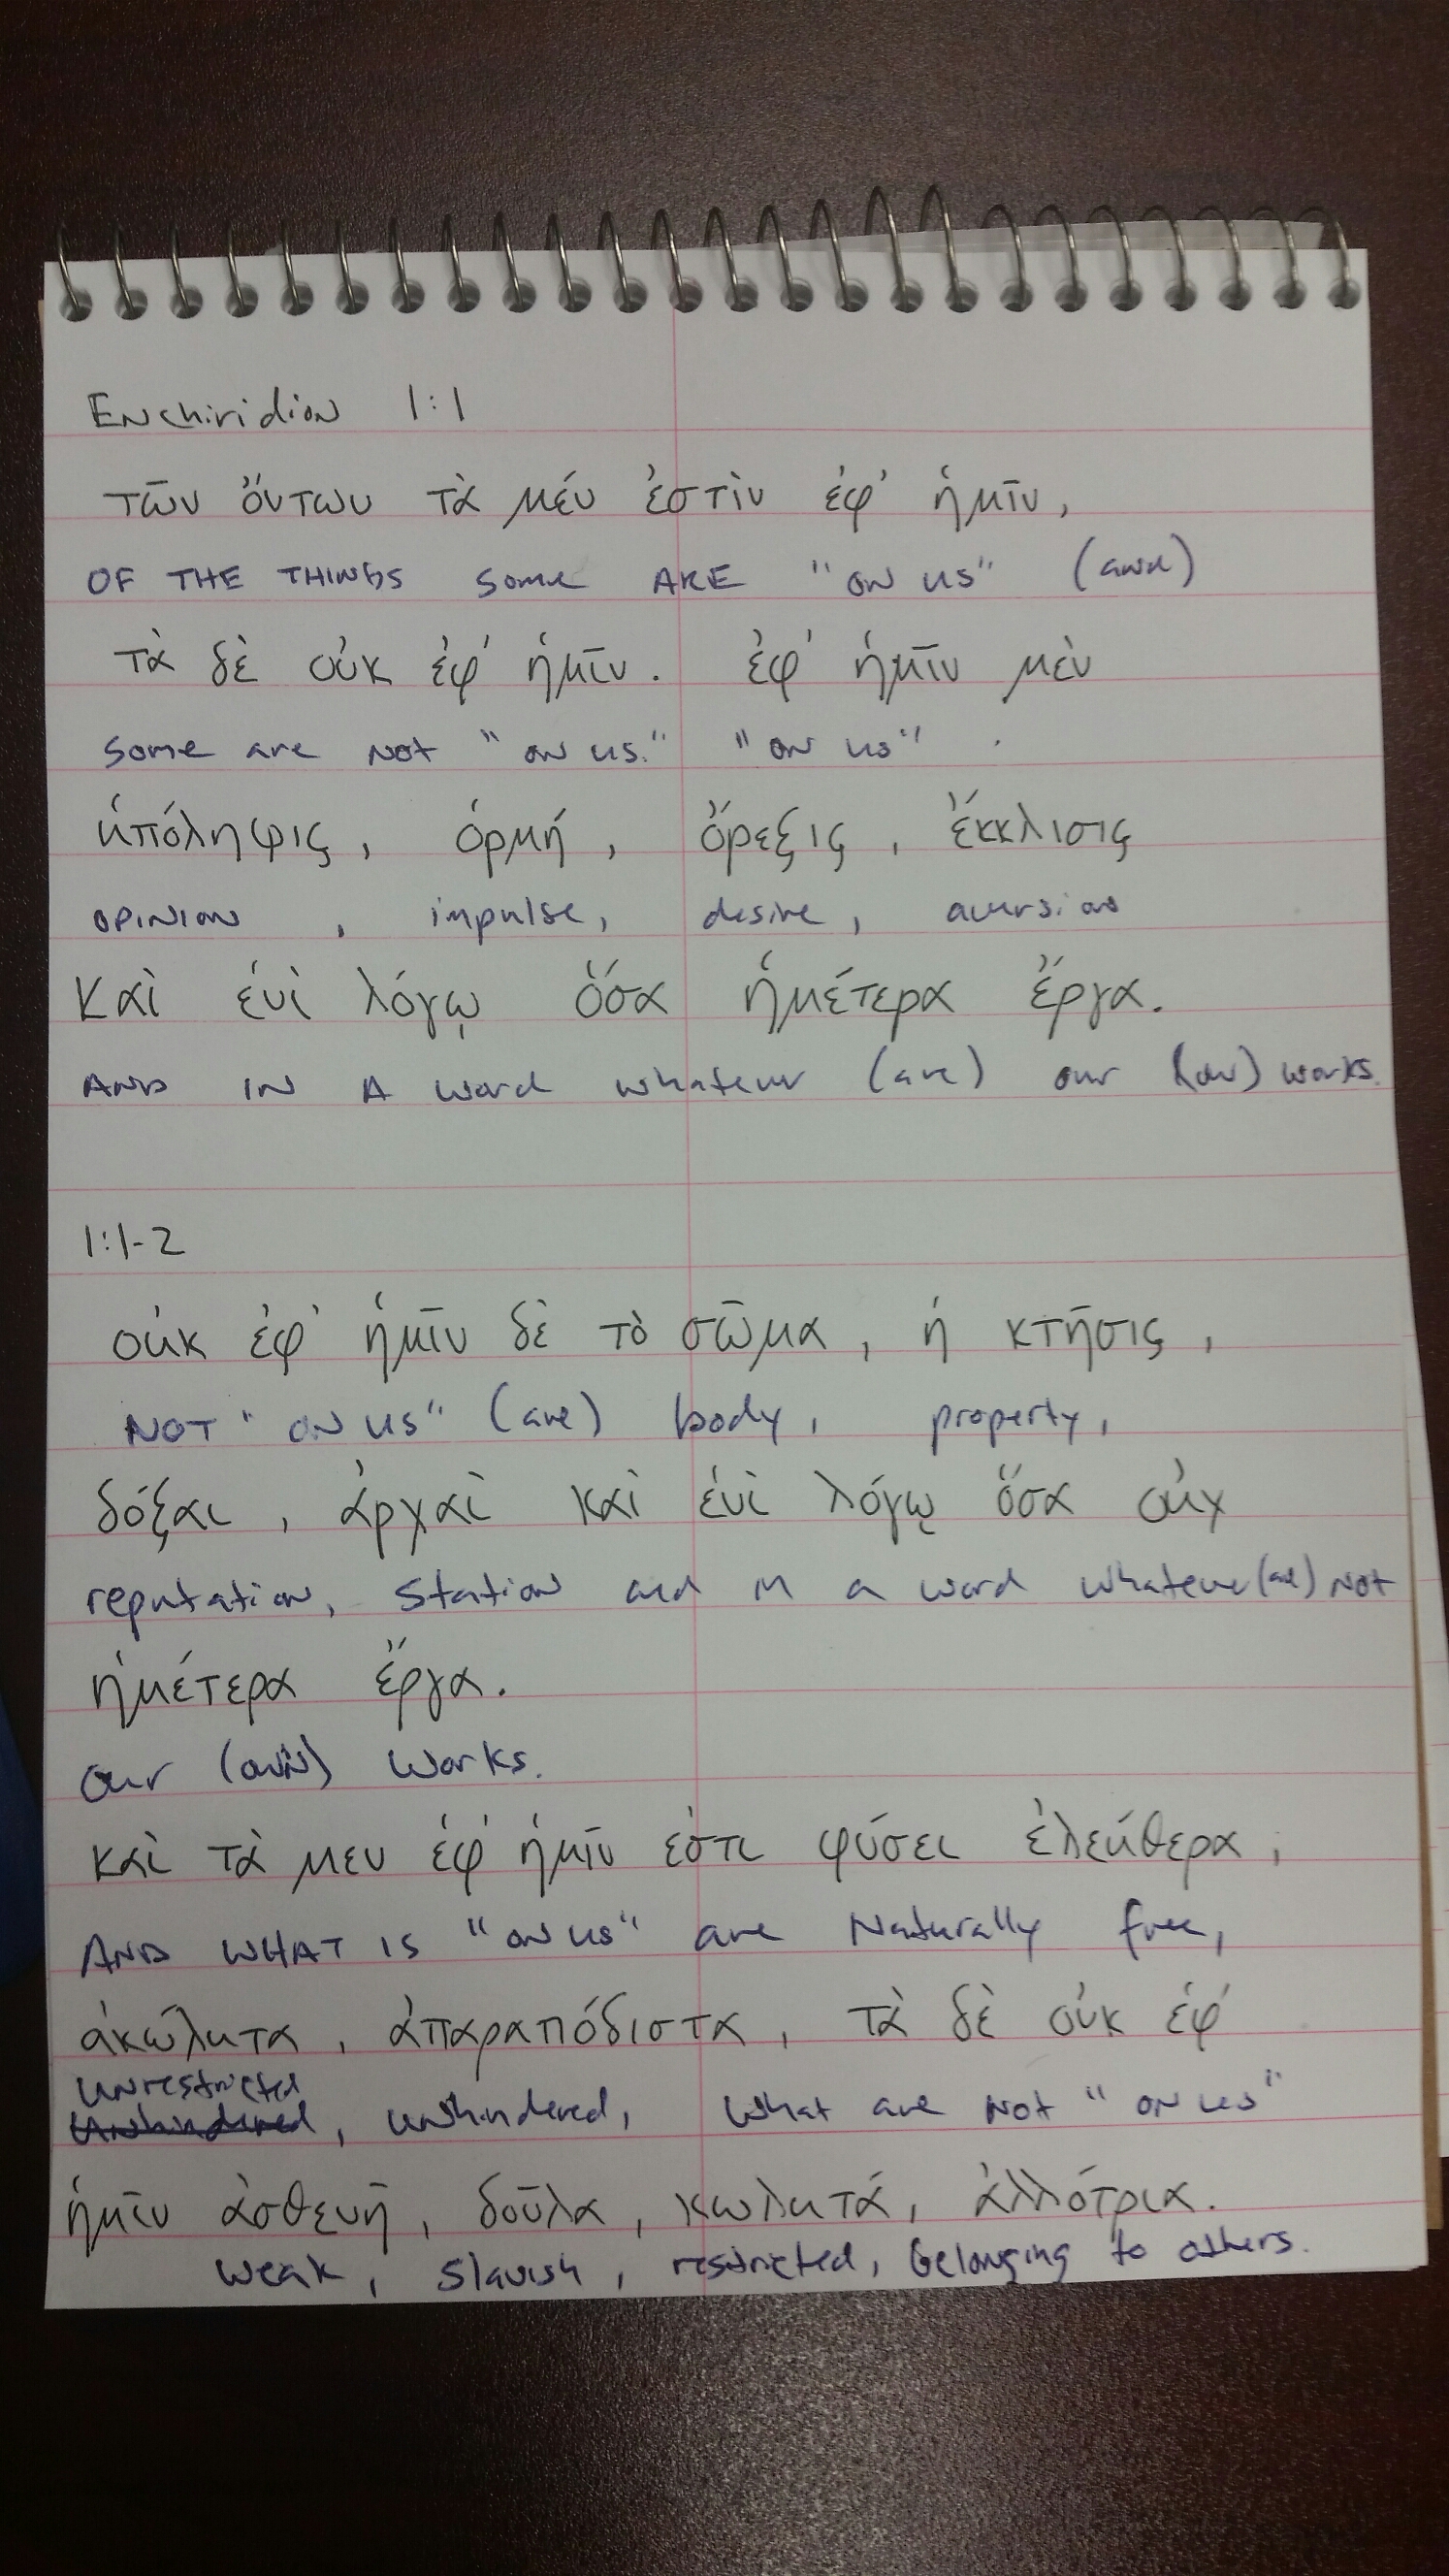 Enchiridion 1:1
τῶν ὄντων τὰ μέν ἐστὶν ἐφ' ἡμῖν,
OF THE THINGS some ARE "ON US" (and)
τὰ δὲ οὐκ ἐφ' ἡμῖν. ἐφ' ἡμῖν μὲν
some are not "on us." "on us"
ὑπόληψις, ὁρμή, ὄρεξις, ἔκκλισις
opinion, impulse, desire, aversion
καὶ ἑνὶ λόγῳ ὅσα ἡμέτερα ἔργα.
AND IN A word whatever (are) our (own) works.
1:1-2
οὐκ ἐφ' ἡμῖν δὲ τὸ σῶμα, ἡ κτῆσις,
NOT "ON US" (are) body, property,
δόξαι, ἀρχαὶ καὶ ἑνὶ λόγῳ ὅσα οὐχ
reputation, station and in a word whatever (are) not
ἡμέτερα ἔργα.
our (own) works.
καὶ τὰ μεν ἐφ' ἡμῖν ἐστι φύσει ἐλεύθερα,
AND WHAT IS "ON US" are Naturally free,
ἀκώλυτα, ἀπαραπόδιστα, τὰ δὲ οὐκ ἐφ'
unrestricted
unhindered, unhindered, what are not "on us"
ἡμῖν ἀσθενῆ, δοῦλα, κωλυτά, ἀλλότρια.
weak, slavish, restricted, belonging to others.